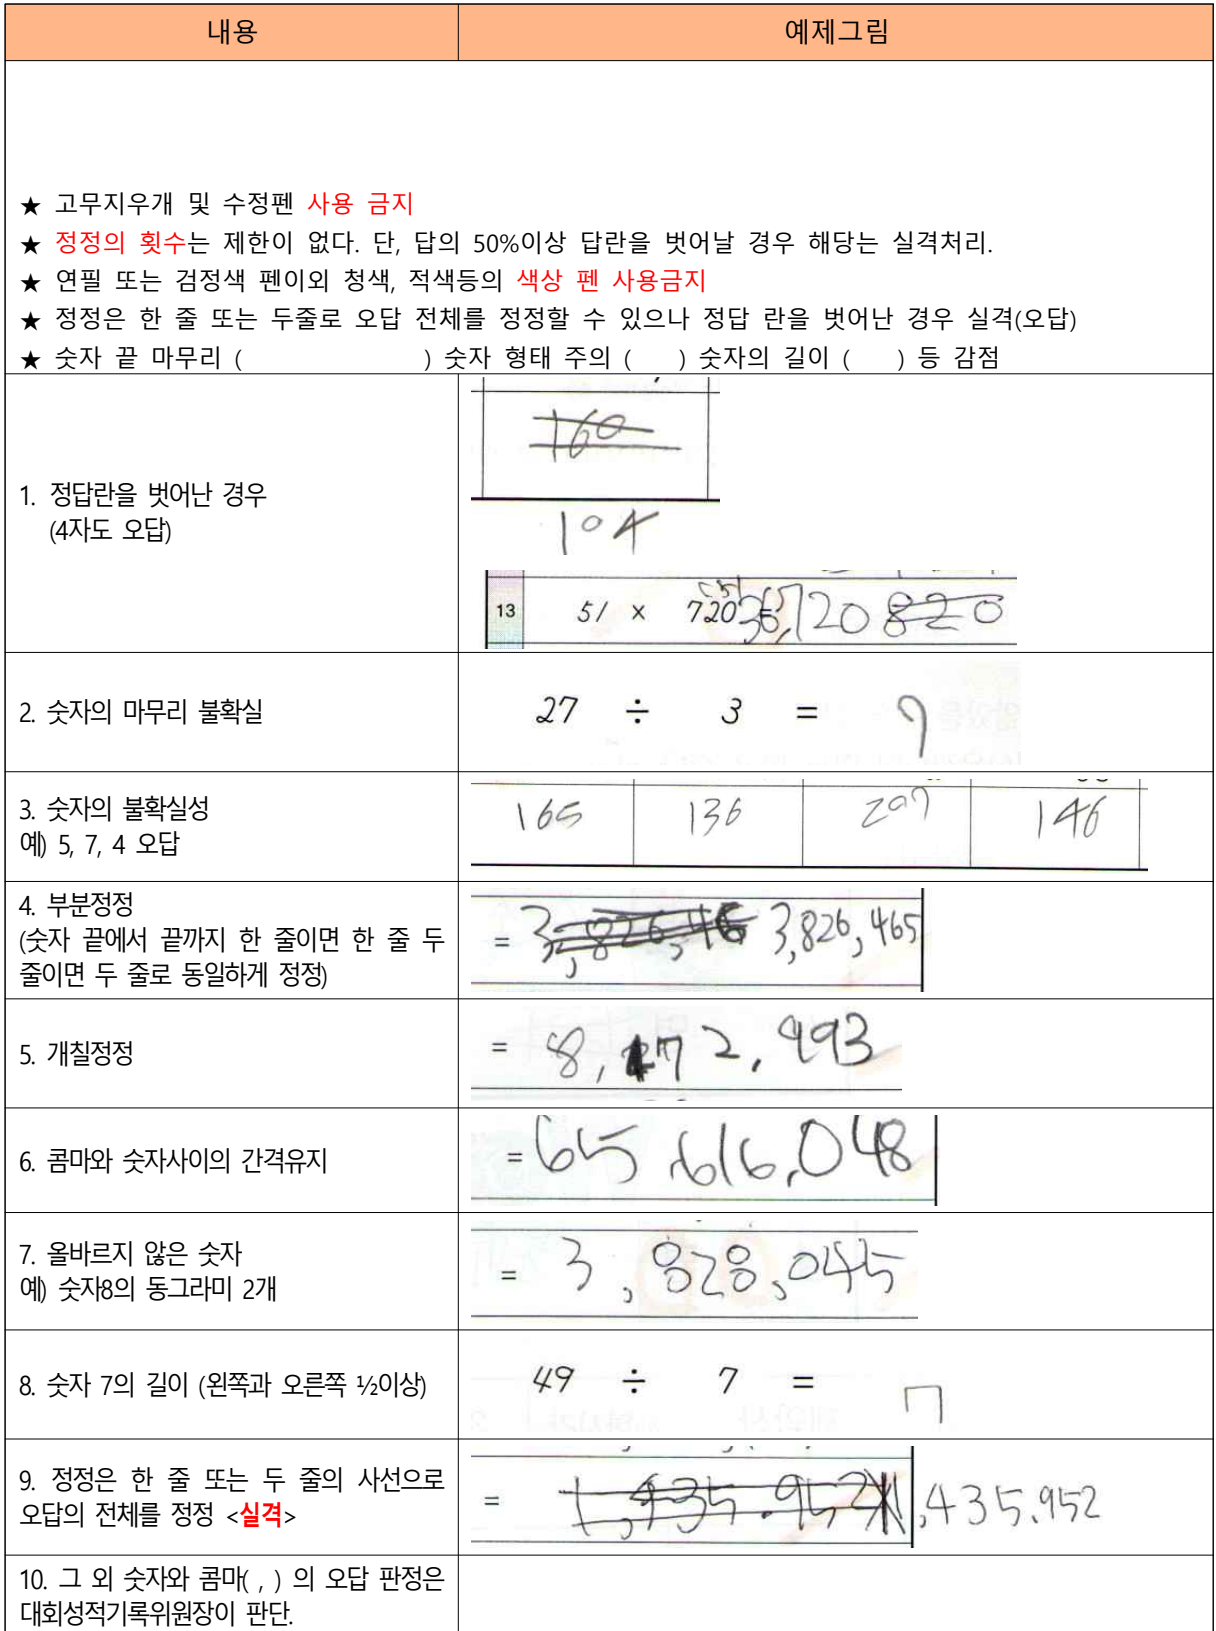 내용 예제그림
★ 고무지우개 및 수정펜 사용 금지
★ 정정의 횟수는 제한이 없다. 단, 답의 50%이상 답란을 벗어날 경우 해당는 실격처리.
★ 연필 또는 검정색 펜이외 청색, 적색등의 색상 펜 사용금지
★ 정정은 한 줄 또는 두줄로 오답 전체를 정정할 수 있으나 정답 란을 벗어난 경우 실격(오답)
★ 숫자 끝 마무리 ( ) 숫자 형태 주의 ( ) 숫자의 길이 ( ) 등 감점
1. 정답란을 벗어난 경우
(4자도 오답)
160
104
13 51 × 720 = 36,720 820
2. 숫자의 마무리 불확실
27 ÷ 3 = 9
3. 숫자의 불확실성
예) 5, 7, 4 오답
165 136 297 146
4. 부분정정
(숫자 끝에서 끝까지 한 줄이면 한 줄 두
줄이면 두 줄로 동일하게 정정)
= 3,826,46 3,826,465
5. 개칠정정
= 8,172,993
6. 콤마와 숫자사이의 간격유지
= 65,616,048
7. 올바르지 않은 숫자
예) 숫자8의 동그라미 2개
= 3,828,045
8. 숫자 7의 길이 (왼쪽과 오른쪽 ½이상)
49 ÷ 7 = 7
9. 정정은 한 줄 또는 두 줄의 사선으로
오답의 전체를 정정 <실격>
= 1,435.952 1,435.952
10. 그 외 숫자와 콤마( , ) 의 오답 판정은
대회성적기록위원장이 판단.